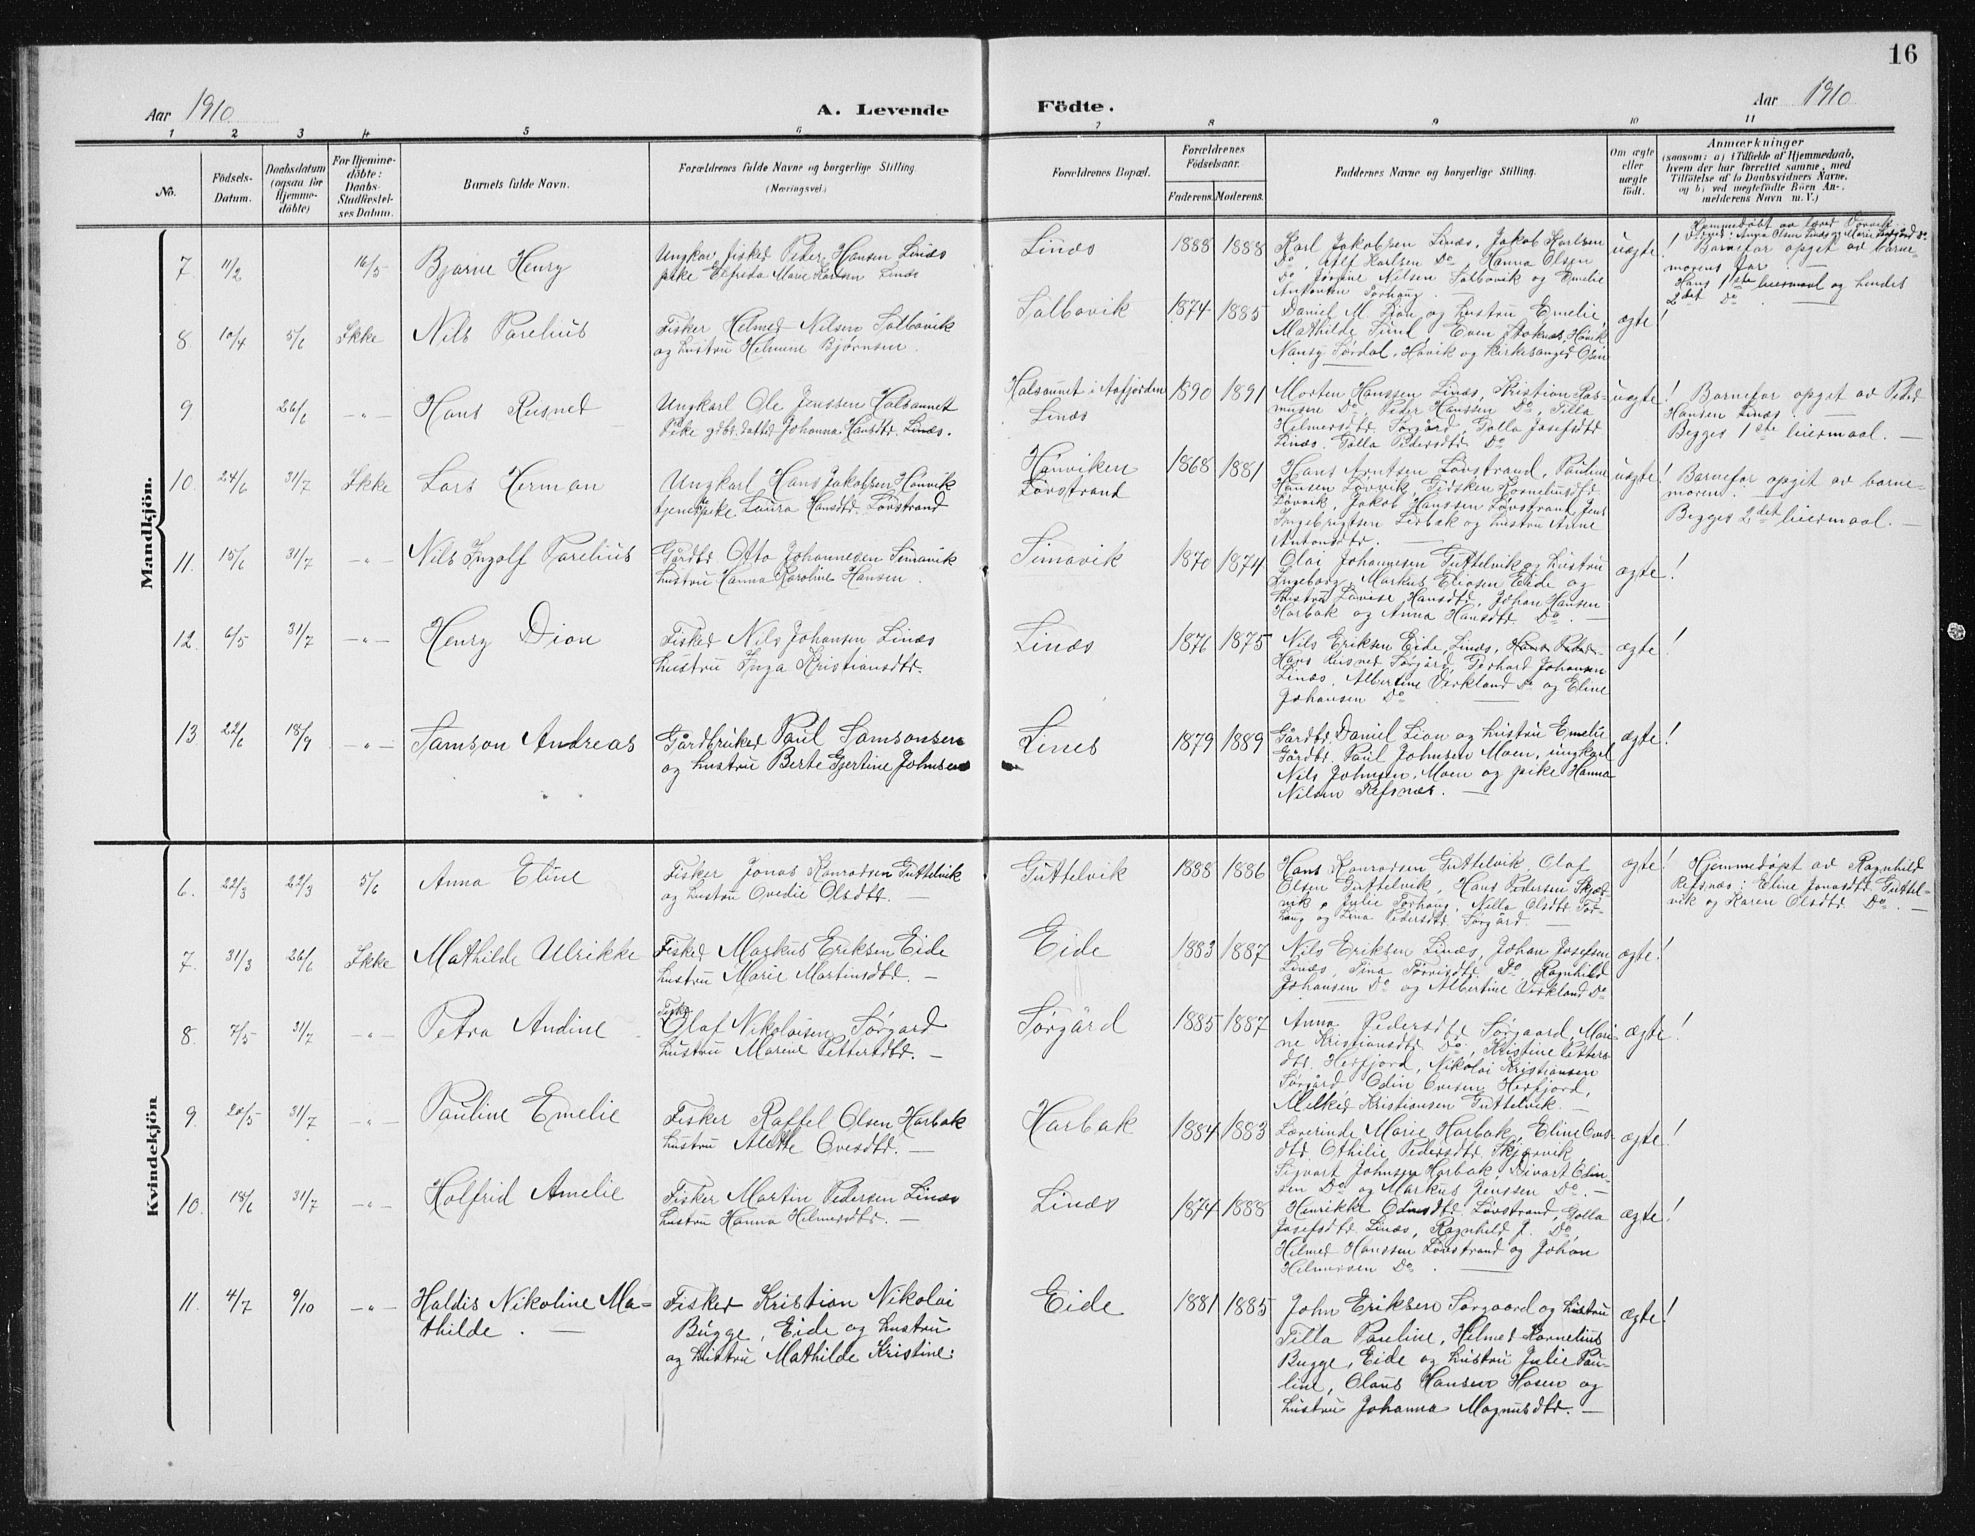 16
Aar 1910
A. Levende
Födte.
Aar 1910
1 2 3 4 5 6 7 8 9 10 11
No.
Födsels-
Datum.
Daabsdatum
(ogsaa for
Hjemme-
döbte)
For Hjemme-
döbte:
Daabs-
Stadfæstel-
ses Datum.
Barnets fulde Navn.
Forældrenes fulde Navne og borgerlige Stilling
(Næringsvei.)
Forældrenes Bopæl.
Forældrenes
Födselsaar.
Faderens. Moderens.
Faddernes Navne og borgerlige Stilling.
Om ægte
eller
uægte
födt.
Anmærkninger
(saasom: a) i Tilfælde af Hjemmedaab,
hvem der har forrettet samme, med
Tilföielse af to Daabsvidners Navne,
og b) ved uegtefödte Börn An-
melderens Navn m. V.)
Mandkjön.
7. 11/2 16/5 Bjarne Henry
Ungkar, fisker Peder Hansen Linæs
pike Elfrida Marie Karlsen Linæs
Linæs 1888 1888
Karl Jakobsen Linæs, Jakob Karlsen
Do, Alf Karlsen Do, Hanna Olsen
Do Jørgine Nilsen Salbovik og Emelie
Antonsen Sørhaug.
uægte!
Barnefar opget av barne-
morens far. —
Hans 1ste leiermaal og hendes
2det Do
8 10/4 5/6 Ikke Nils Parelius
Fisker Helmer Nilsen Salbovik
og hustru Helmine Bjørnsen.
Salbovik 1874 1885
Daniel M. Lian og hustru Emelie,
Mathilde Sund, Even Stoknes, Hövik
Nansy Sørdal, Hövik og kirkesanger Olsen
ægte!
9 26/6 -"- Hans Rusned
Ungkarl Ole Jenssen Halsaunet
Pike gdbr. datter Johanna Hansdtr. Linæs.
Halsaunet i Aafjorden
Linæs
1890 1891
Morten Hanssen Linæs, Kristian Ras-
musen Do, Peder Hanssen Do, Tilla
Helmersdtr. Sørgård, Golla Josefsdtr
Linæs. Golla Pedersdtr. Do
uægte!
Barnefar opget av Peder
Hansen Linæs. —
Begges 1ste leiermaal. —
10. 24/6 31/7 Ikke Lars Herman
Ungkarl Hans Jakobsen Hönvik
tjenestepike Laura Hansdtr. Løvstrand
Hönviken
Løvstrand
1868 1881
Hans Arntsen Løvstrand, Pauline
Hansen Løvvik, Gidsken Korneliusdtr
Løvvik, Jakob Hanssen Løvstrand, Jens
Ingebrigtsen Lerbak og hustru Anne
Antonsdtr. —
uægte!
Barnefar opgit av barne-
moren. —
Begges 2det leiermaal. —
11. 15/6 31/7 -"- Nils Ingolf Parelius
Gårdbr Otto Johannesen Simavik
hustru Hanna Karoline Hansen.
Simavik 1870 1874
Olai Johannesen Guttelvik og hustru
Ingeborg, Markus Eliasen Eide og
hustru Lovise Hansdtr, Johan Hansen
Harbak og Anna Hansdtr Do. —
ægte!
12. 6/5 31/7 -"- Henry Dion
Fisker Nils Johansen Linæs
hustru Inga Kristiansdtr.
Linæs 1876 1875
Nils Eriksen Eide, Linæs,
Hans Rusned Sørgård, Gerhard Johansen
Linæs, Albertine Virkland Do og Eline
Johansen Do —
ægte!
13 22/6 18/9 -"- Samson Andreas
Gårdbruker Paul Samsonsen
og hustru Berte Gjertine Johnsen
Lines 1879 1889
Gårdbr. Daniel Lian og hustru Emelie
Gårdbr. Paul Johnsen Moen, ungkarl
Nils Johnsen, Moen og pike Hanna
Nilsen Refsnæs. —
ægte!
Kvindekjön
6. 22/3 22/3 5/6 Anna Eline
Fisker Jonas Konradsen Guttelvik
og hustru Ovedie Olsdtr. —
Guttelvik 1888 1886
Hans Konradsen Guttelvik, Olaf
Olsen Guttelvik, Hans Pedersen Skjær-
vik, Julie Sørhaug, Nella Olsdtr Sør-
haug og Lina Pedersdtr. Sørgård —
ægte!
Hjemmedøpt av Ragnhild
Refsnæs; Eline Jonasdtr. Guttel-
vik og Karen Olsdtr. Do. —
7. 31/3 26/6 Ikke Mathilde Ulrikke
Fisker Markus Eriksen Eide
hustru Marie Martinsdtr. —
Eide 1883 1887
Nils Eriksen Linæs, Johan Josefsen
Linæs, Tina Torrisdtr. Do, Ragnhild
Johansen Do og Albertine Virkland Do
ægte!
8. 7/5 31/7 -"- Petra Andine
Fisker
Olaf Nikolaisen Sørgard
hustru Marine Pettersdtr. —
Sørgård 1885 1887
Anna Pedersdtr Sørgaard, Mari-
ne Kristiansdtr Do, Kristine Petters-
dtr. Herfjord, Nikolai Kristiansen
Sørgård, Odin Ovesen Herfjord,
Melkiør Kristiansen Guttelvik. —
ægte!
9. 20/5 31/7 -"- Pauline Emelie
Fisker Raffel Olsen Harbak
hustru Alette Ovesdtr. —
Harbak 1884 1883
Laverinde Marie Harbak, Eline Oves-
dtr. Othilie Pedersdtr. Skjærvik
Sigvart Johnsen Harbak, Divart Elin-
sen Do og Markus Jenssen Do. —
ægte!
10. 18/6 31/7 -"- Halfrid Amelie
Fisker Martin Pedersen Linæs
hustru Hanna Helmersdtr. —
Linæs 1874 1888
Henrikke Odinsdtr. Løvstrand, Golla
Josefsdtr Linæs, Ragnhild J. Do,
Helmer Hanssen Løvstrand og Johan
Helmersen Do. —
ægte!
11. 4/7 9/10 -"- Haldis Nikoline Ma-
thilde. —
Fisker Kristian Nikolai
Bugge, Eide og hustru
og hustru Mathilde Kristine.
Eide 1881 1885
John Eriksen Sørgaard og hustru
Tilla Pauline, Helmer Kornelius
Bugge, Eide og hustru Julie Pau-
line, Olaus Hansen Hosen og
hustru Johanna Magnusdtr. —
ægte!